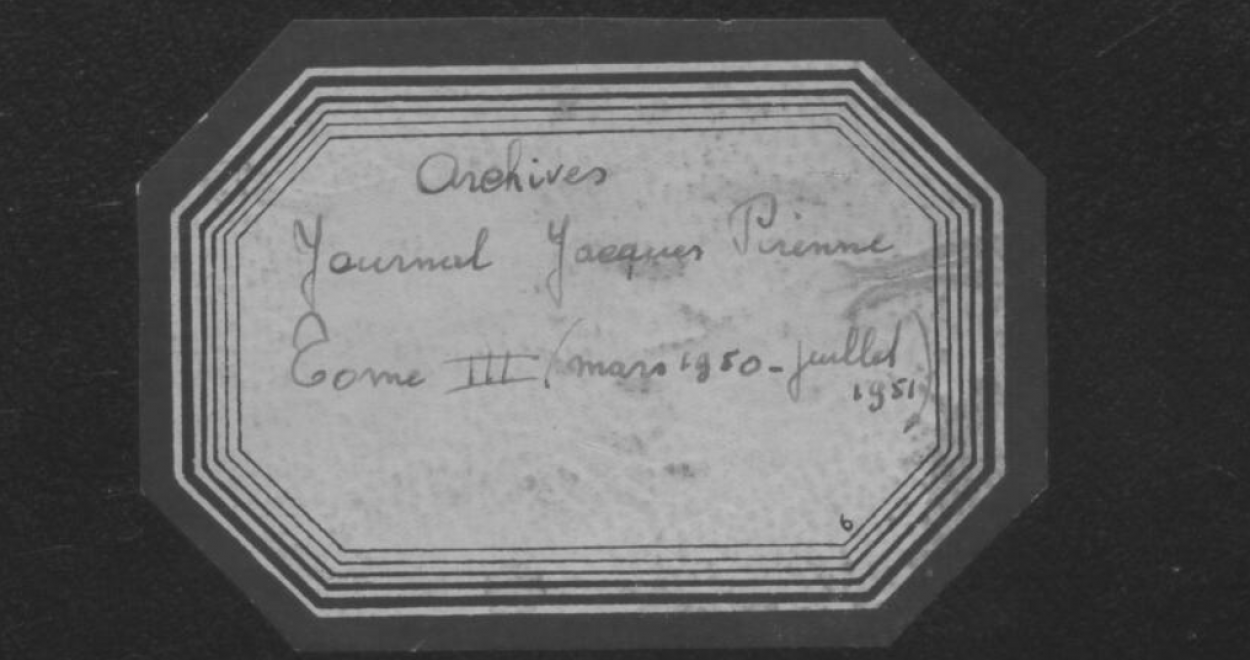 Archives
Journal Jacques Pirenne
Tome III (mars 1950 - juillet
1951)
6